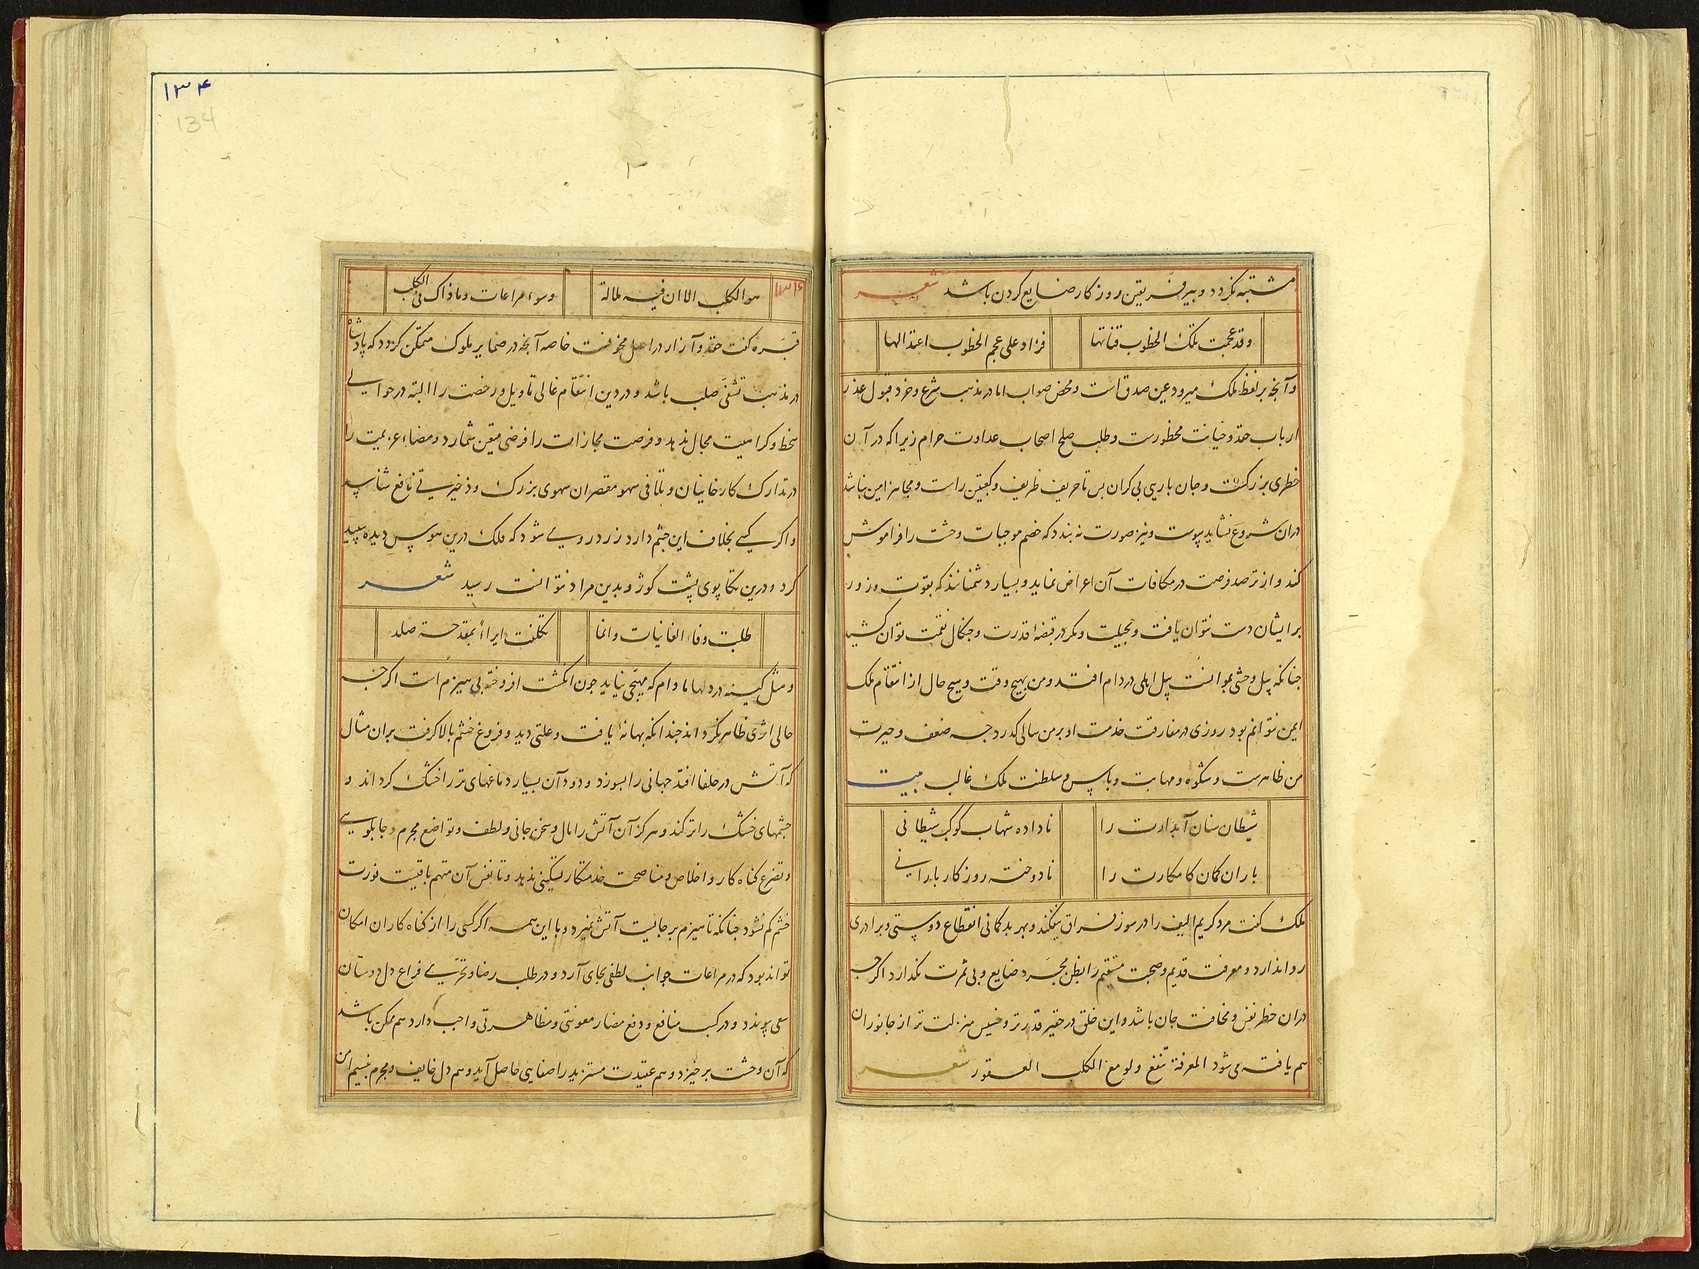 مشتبه نگردد و بیرفریفتن روزگار ضایع کردن باشد شعر
وقد عجمت تلک الخطوب قناتها فزاد علی عجم الخطوب اعتدالها
و آنچه بر لفظ ملک میرود عین صدق است و محض صواب اما در مذهب شرع و خرد قبول عذر
ارباب حقد و خیانت محظورست و طلب صلح اصحاب عداوت حرام زیرا که در آن
خطری بزرگست و جان بازیی بی کران بس تا حریف ظریف و کعبتین راست و مجاهز امین نباشد
دران شروع نشاید پیوست و نیز صورت نه بندد که خصم موجبات وحشت را فراموش
کند و از ترصد فرصت در مکافات آن اعراض نماید و بسیار دشمنانند که بقوت و زور
برایشان دست نتوان یافت و بحیلت و مکر در قبضۀ قدرت و چنگال نقمت توان کشید
چنانکه پیل وحشی بموانست پیل اهلی در دام افتد و من بهیچ وقت و هیچ حال از انتقام ملک
ایمن نتوانم بود روزی در مفارقت خدمت او بر من سالی گذرد چه ضعف و حیرت
من ظاهرست و شکوه و مهابت و باس و سلطنت ملک غالب بیت
شیطان سنان آبدارت را ناداده شهاب کوکب شیطانی
باران کمان کامکارت را نادوخته روزگار بارانی
ملک گفت مرد کریم الیف را در سوز فراق نیفکند و بهر بدگمانی انقطاع دوستی و برادری
روا ندارد و معرفت قدیم و صحبت مستقیم را بظن مجرد ضایع و بی ثمرت نگذارد اگرچه
دران خطر نفس و مخافت جان باشد و این خلق در حقیر قدرتر و خسیس منزلت تر از جانوران
هم یافته می شود المعرفة تنفع ولو مع الکلب العقور شعر
۱۳۴
134
هو الکلب الا ان فیه ملالة وسوء مراعات وما ذاک فی الکلب
قبره گفت حقد و آزار در اصل مخوفست خاصه آنچه در ضمایر ملوک متمکن گردد که پادشاه
در مذهب تشفی صلب باشد و در دین انتقام غالی تاویل و رخصت را البته در حوالی
سخط و کراهیت مجال ندهد و فرصت مجازات را فرضی متعین شمارد و مضاء عزیمت را
در تدارک کار خاینان و تلافی سهو مقصران سهوی بزرگ و ذخیرتی نافع شناسد
و اگر کسی بخلاف این چشم دارد زرد روی شود که فلک درین هوس دیده سپید
کرد و درین تکاپوی پشت کوژ و بدین مراد نتوانست رسید شعر
طلبت وفاء الغانیات وانما تکلفت ایراء بمقدحة صلد
و مثل کینه در دلها مادام که مهیجی نیابد چون انگشت افروخته بی هیزم است اگرچه
حالی اثری ظاهر نگرداند چندانکه بهانۀ یافت و علتی دید و فروغ خشم بالا گرفت بران مثال
که آتش در حلفا افتد جهانی را بسوزد و دود آن بسیار دماغهای تر را خشک گرداند و
چشمهای خشک را تر کند و هرگز آن آتش را مال و سخن جانی و لطف و تواضع مجرم و چابلوسی
و تضرع گناه کار و اخلاص و مناصحت خدمتکار تسکینی ندهد و تا نفس آن متهم باقیست فورت
خشم کم نشود چنانکه تا هیزم بر جایست آتش نمیرد و با این همه اگر کسی را از گناه کاران امکان
تواند بود که در مراعات جوانب لطفی بجای آرد و در طلب رضا و تحری فراغ دل دوستان
سعی پیوندد و در کسب منافع و دفع مضار معونتی و مظاهرتی واجب دارد هم ممکن باشد
که آن وحشت برخیزد و هم عقیدت مستزید را صفایی حاصل آید و هم دل خایف مجرم بنسیم امن